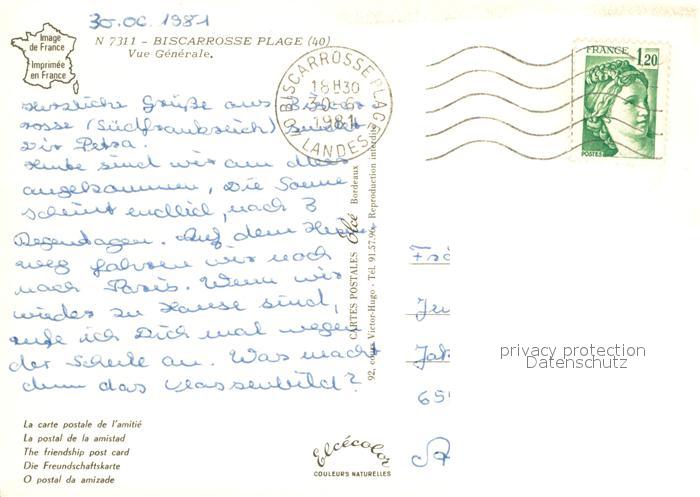 30.06.1981
Image
de France
Imprimée
en France
N 7311 - BISCARROSSE PLAGE (40)
Vue Générale.
40 BISCARROSSE PLAGE
18H30
30-6
1981
LANDES
FRANCE 1,20
POSTES
Herzliche Grüße aus Biscar-
rosse (Südfrankreich) sendet
Dir Petra.
Heute sind wir am Meer
angekommen, Die Sonne
scheint endlich, nach 3
Regentagen. Auf dem Heim-
weg fahren wir noch
nach Paris. Wenn wir
wieder zu Hause sind,
rufe ich Dich mal wegen
der Schule an. Was macht
denn das Klassenbild?
CARTES POSTALES Elcé Bordeaux
92, cours Victor-Hugo - Tél. 91.57.90 - Reproduction interdite
65
privacy protection
Datenschutz
La carte postale de l'amitié
La postal de la amistad
The friendship post card
Die Freundschaftskarte
O postal da amizade
Elcécolor
COULEURS NATURELLES